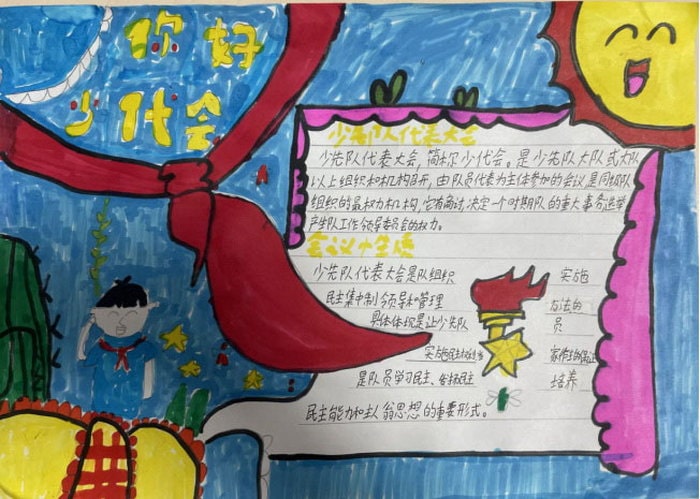 你好
少代会
少先队代表大会
少先队代表大会,简称少代会。是少先队大队或大队
以上组织和机构召开,由队员代表为主体参加的会议,是同级队
组织的最权力机构,它有商讨、决定一个时期队的重大事务选举
产生队工作领导委员会的权力。
会议性质
少先队代表大会是队组织 实施
民主集中制领导和管理 方法的
具体体现是让少先队 员
实施民主 家作主的
是队员学习民主、发扬民主 培养
民主能力和主人翁思想的重要形式。